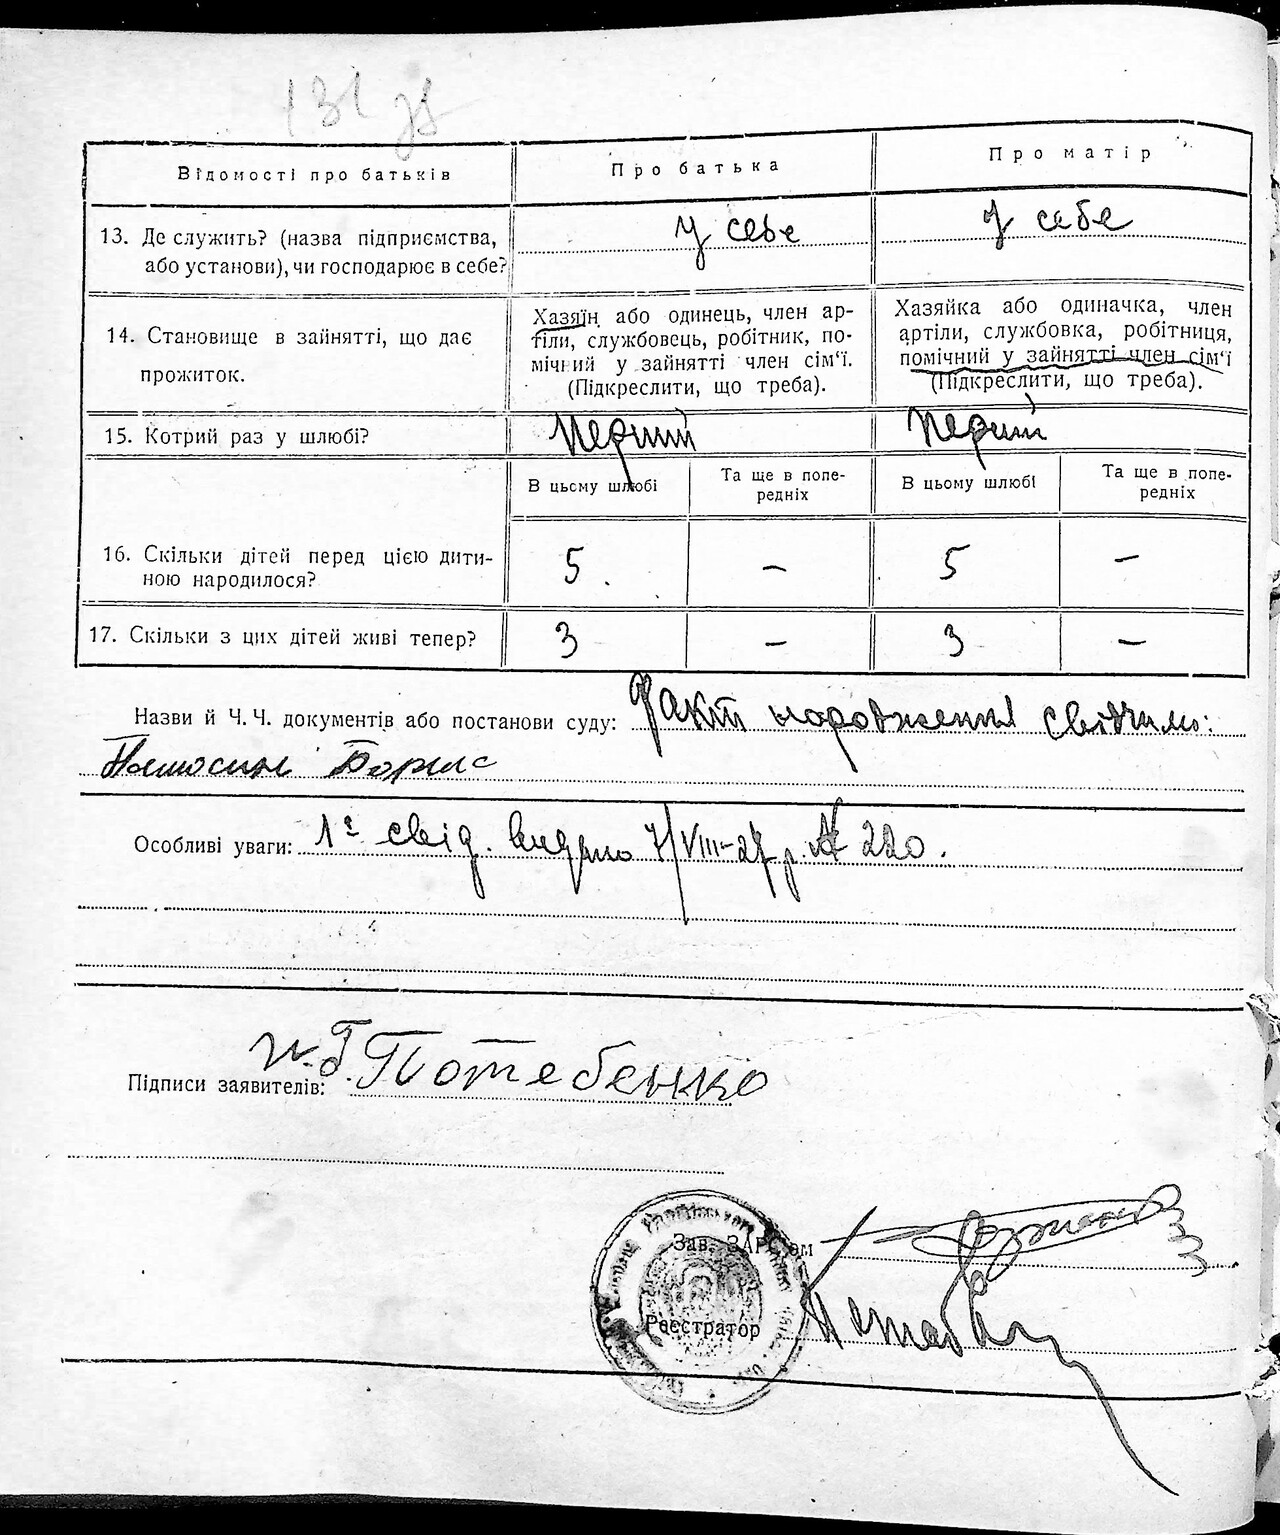 131 зв
Відомості про батьків
Про батька
Про матір
13. Де служить? (назва підприємства,
або установи), чи господарює в себе?
у себе
у себе
14. Становище в зайнятті, що дає
прожиток.
Хазяїн або одинець, член ар-
тіли, службовець, робітник, по-
мічний у зайнятті член сім'ї.
(Підкреслити, що треба).
Хазяйка або одиначка, член
артіли, службовка, робітниця,
помічний у зайнятті член сім'ї
(Підкреслити, що треба).
15. Котрий раз у шлюбі?
перший
перший
В цьому шлюбі
Та ще в попе-
редніх
В цьому шлюбі
Та ще в попе-
редніх
16. Скільки дітей перед цією дити-
ною народилося?
5
–
5
–
17. Скільки з цих дітей живі тепер?
3
–
3
–
Назви й Ч. Ч. документів або постанови суду: факт народження свідчимо:
Борис
Особливі уваги: 1е свід. видано 7/VIII-27 р. № 220.
Підписи заявителів: Потебенко
Зав. ЗАГС'ом
Реєстратор